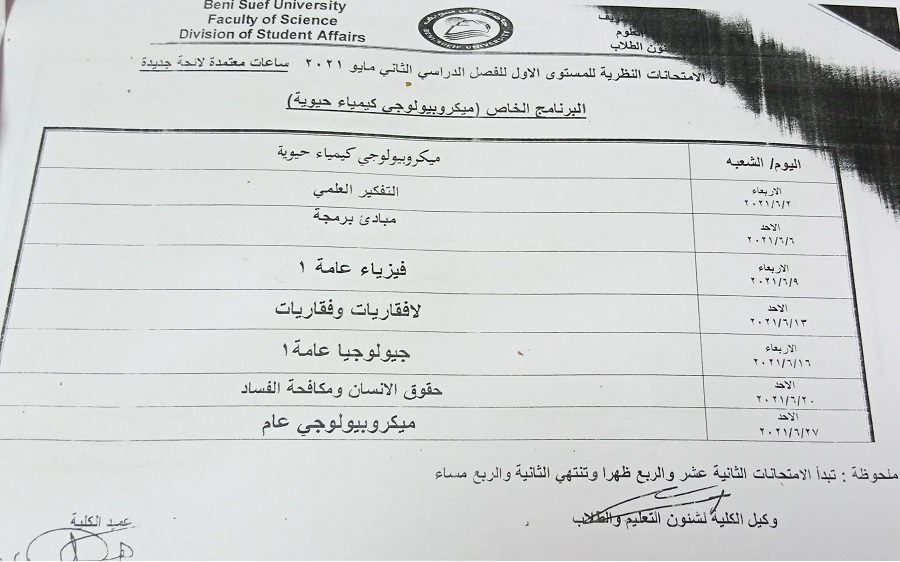 Beni Suef University
Faculty of Science
Division of Student Affairs
BENI-SUEF UNIVERSITY
العلوم
شئون الطلاب
الامتحانات النظرية للمستوى الاول للفصل الدراسي الثاني مايو ٢٠٢١ ساعات معتمدة لائحة جديدة
البرنامج الخاص (ميكروبيولوجي كيمياء حيوية)
اليوم/ الشعبه ميكروبيولوجي كيمياء حيوية
الاربعاء ٢٠٢١/٦/٢ التفكير العلمي
الاحد ٢٠٢١/٦/٦ مبادئ برمجة
الاربعاء ٢٠٢١/٦/٩ فيزياء عامة ١
الاحد ٢٠٢١/٦/١٣ لافقاريات وفقاريات
الاربعاء ٢٠٢١/٦/١٦ جيولوجيا عامة١
الاحد ٢٠٢١/٦/٢٠ حقوق الانسان ومكافحة الفساد
الاحد ٢٠٢١/٦/٢٧ ميكروبيولوجي عام
ملحوظة : تبدأ الامتحانات الثانية عشر والربع ظهرا وتنتهي الثانية والربع مساء
وكيل الكلية لشئون التعليم والطلاب
عميد الكلية